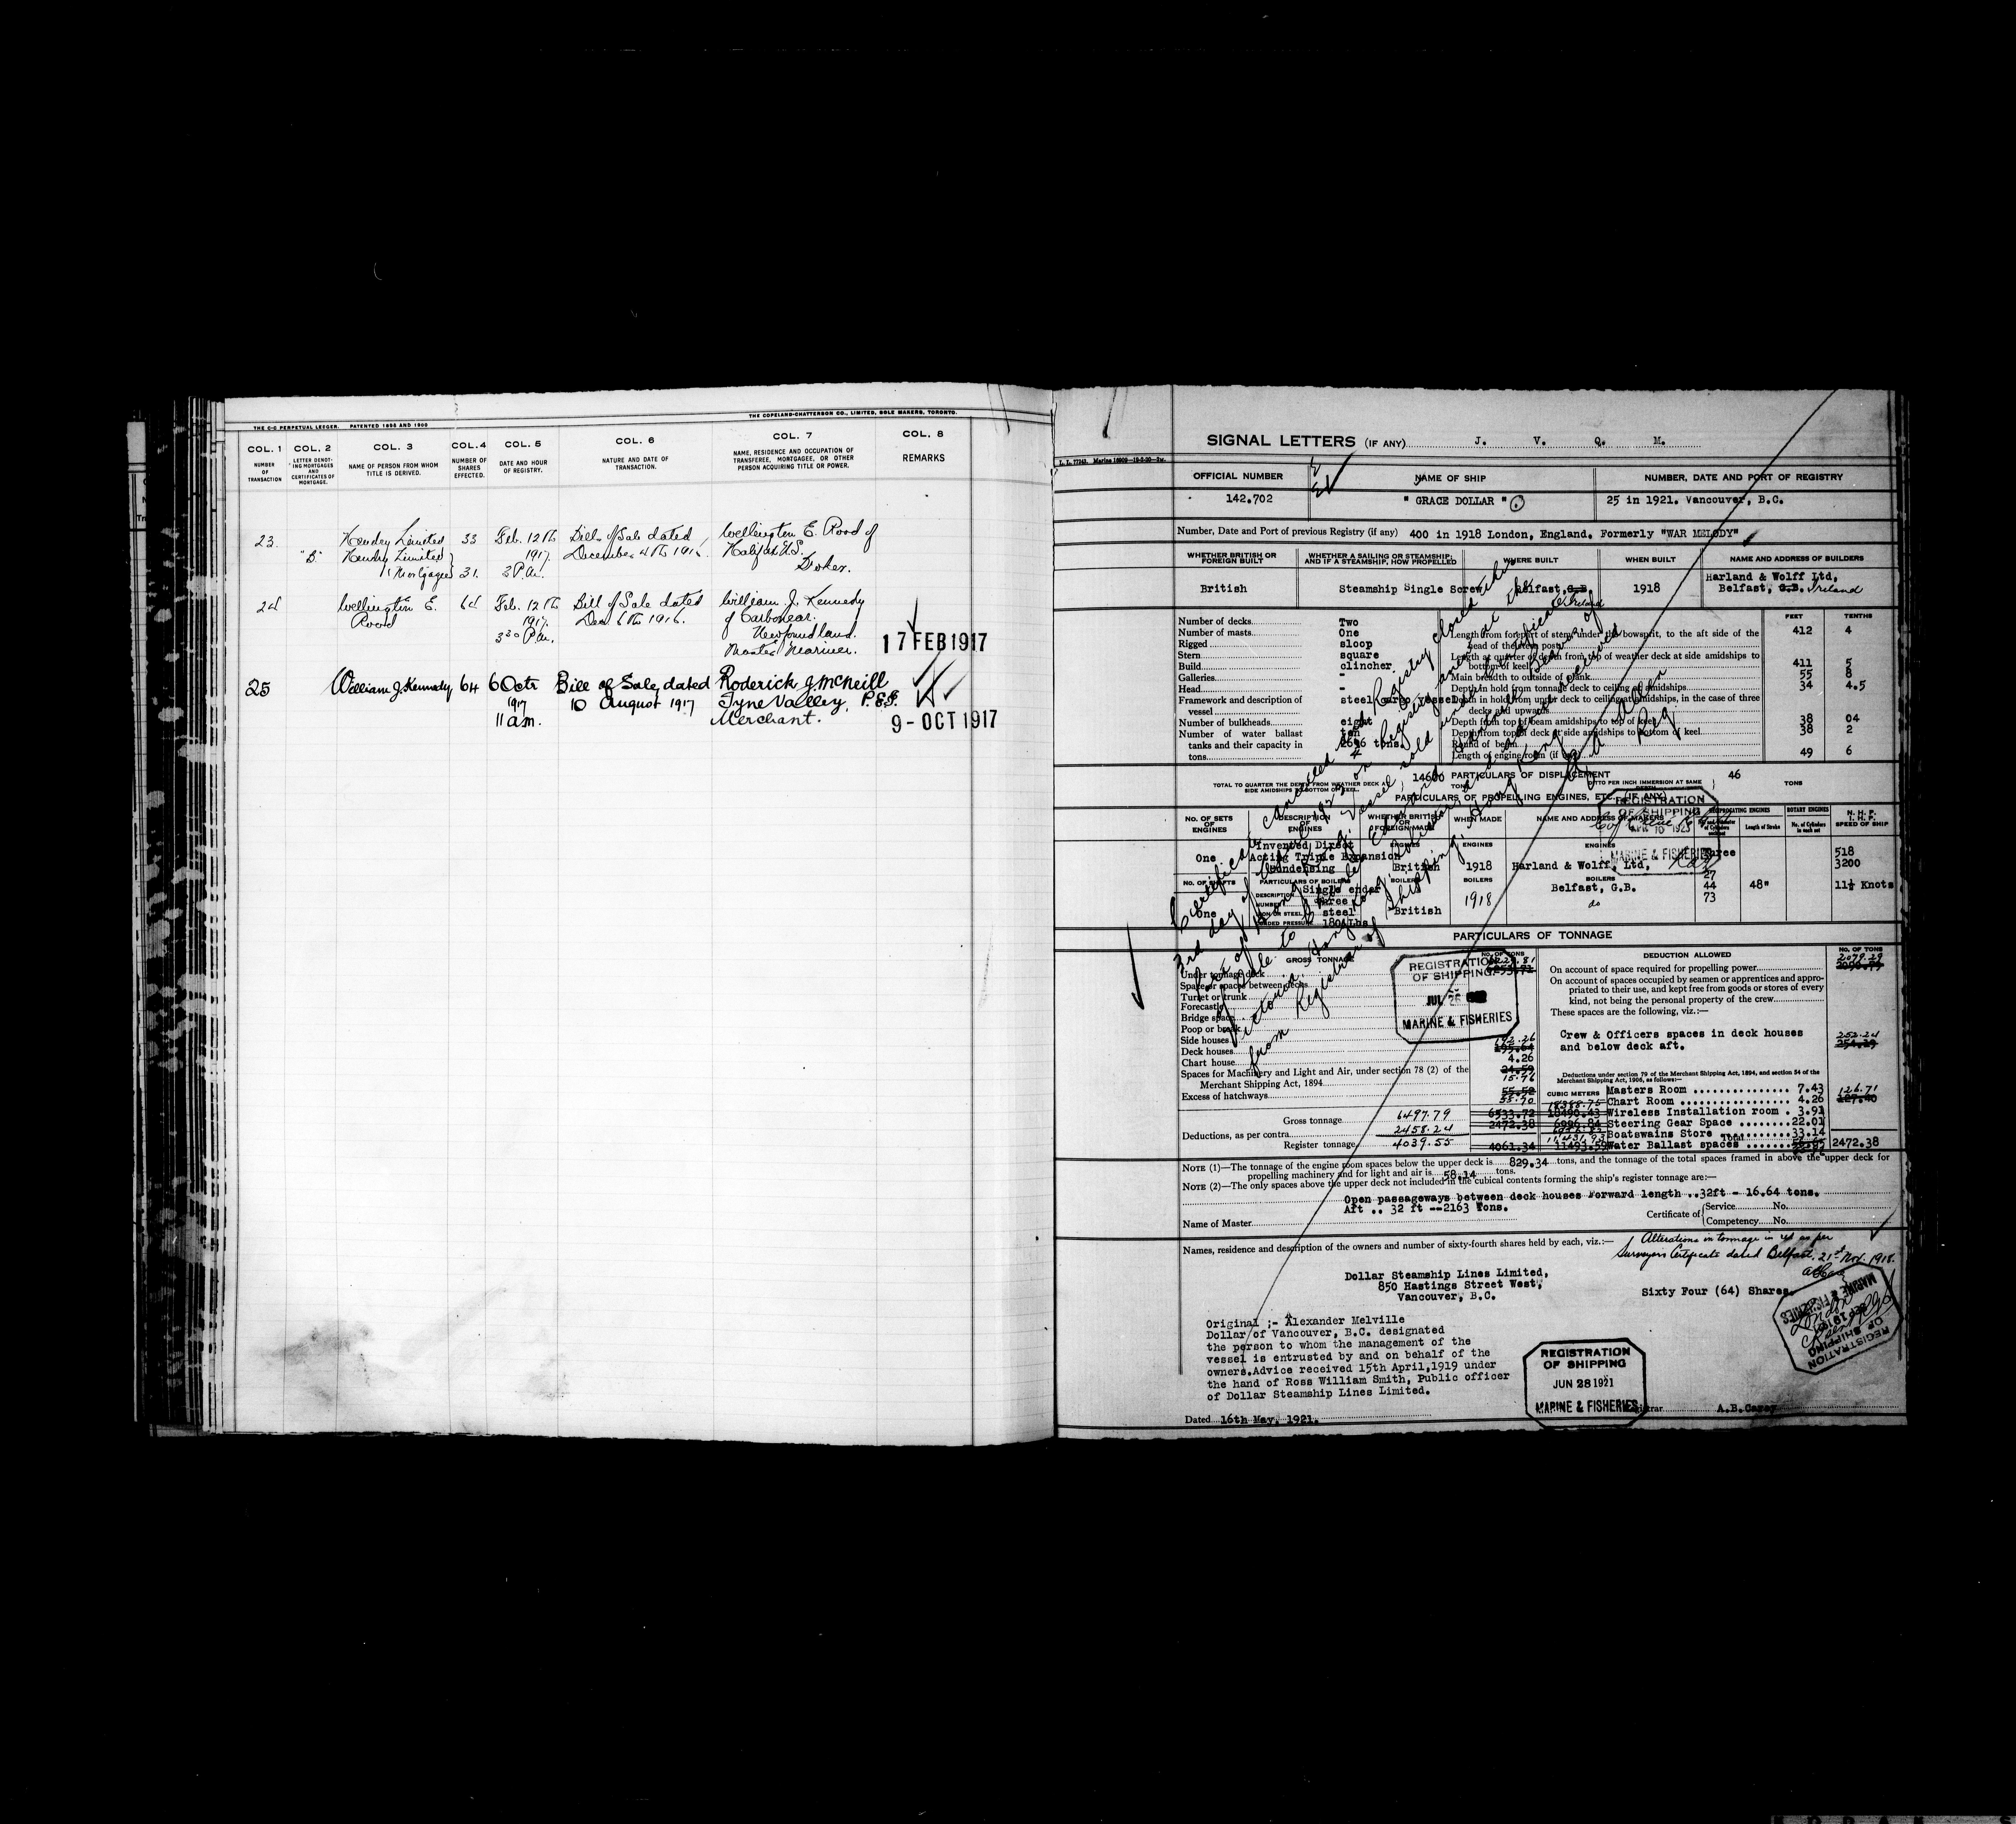 THE COPELAND-CHATTERSON CO., LIMITED, SOLE MAKERS, TORONTO.
THE C-C PERPETUAL LEDGER. PATENTED 1898 AND 1900
COL. 1 COL. 2 COL. 3 COL. 4 COL. 5 COL. 6 COL. 7 COL. 8
NUMBER OF TRANSACTION
LETTER DENOTING MORTGAGES AND CERTIFICATES OF MORTGAGE.
NAME OF PERSON FROM WHOM TITLE IS DERIVED.
NUMBER OF SHARES EFFECTED.
DATE AND HOUR OF REGISTRY.
NATURE AND DATE OF TRANSACTION.
NAME, RESIDENCE AND OCCUPATION OF TRANSFEREE, MORTGAGEE, OR OTHER PERSON ACQUIRING TITLE OR POWER.
REMARKS
23 Hendry Limited 33 Feb. 12th Bill of Sale dated Wellington E. Rood of
"B" Hendry Limited 1917. December 4th 1916. Halifax N.S.
(Mortgagee) 31. 3 P.m. Broker.
24 Wellington E. 64 Feb. 12th Bill of Sale dated William J. Kennedy
Rood 1917. Dec. 6th 1916. of Carbonear.
3 30 P.m. Newfoundland.
Master Mariner.
17 FEB 1917
25 William J. Kennedy 64 6 Octr Bill of Sale dated Roderick J. McNeill
1917 10 August 1917 Tyne Valley, P.E.I.
11 a.m. Merchant.
9 - OCT 1917
SIGNAL LETTERS (IF ANY) J. V. Q. M.
OFFICIAL NUMBER NAME OF SHIP NUMBER, DATE AND PORT OF REGISTRY
142.702 " GRACE DOLLAR " 25 in 1921. Vancouver, B.C.
Number, Date and Port of previous Registry (if any) 400 in 1918 London, England. Formerly "WAR MELODY"
WHETHER BRITISH OR FOREIGN BUILT
WHETHER A SAILING OR STEAMSHIP; AND IF A STEAMSHIP, HOW PROPELLED
WHERE BUILT
WHEN BUILT
NAME AND ADDRESS OF BUILDERS
British Steamship Single Screw Belfast, G.B. Ireland 1918 Harland & Wolff Ltd,
Belfast, G.B. Ireland
FEET TENTHS
Number of decks Two
Number of masts One
Rigged sloop
Stern square
Build clincher
Galleries -
Head -
Framework and description of vessel steel Cargo vessel
Number of bulkheads eight
Number of water ballast tanks and their capacity in tons ten 2696 tons.
Length from forepart of stem, under the bowsprit, to the aft side of the head of the stern post 412 4
Length at quarter of depth from top of weather deck at side amidships to bottom of keel 411 5
Main breadth to outside of plank 55 8
Depth in hold from tonnage deck to ceiling at amidships 34 4.5
Depth in hold from upper deck to ceiling at amidships, in the case of three decks and upwards
Depth from top of beam amidships to top of keel 38 04
Depth from top of deck at side amidships to bottom of keel 38 2
Round of beam
Length of engine room (if any) 49 6
PARTICULARS OF DISPLACEMENT
TOTAL TO QUARTER THE DEPTH FROM WEATHER DECK AT SIDE AMIDSHIPS TO BOTTOM OF KEEL 14600 TONS
DITTO PER INCH IMMERSION AT SAME DEPTH 46 TONS
PARTICULARS OF PROPELLING ENGINES, ETC. (IF ANY)
NO. OF SETS OF ENGINES
DESCRIPTION OF ENGINES
WHEN MADE
NAME AND ADDRESS OF MAKERS
RECIPROCATING ENGINES
ROTARY ENGINES
Length of Stroke
N. H. P.
I. H. P.
SPEED OF SHIP
One Invented Direct Acting Triple Expansion Condensing British 1918 Harland & Wolff, Ltd, Three 518
3200
NO. OF SHAFTS
PARTICULARS OF BOILERS
Single ended
Three
One steel British 1918 Belfast, G.B.
do
180 Lbs
27
44
73
48" 11½ Knots
REGISTRATION OF SHIPPING
APR 10 1923
MARINE & FISHERIES
Certificate cancelled and Registry closed this
3rd day of
Port of Hong Kong. Vessel sold under Certificate
of Sale to
Victoria, Hong Kong.
from Registrar of Shipping, Hong Kong.
PARTICULARS OF TONNAGE
GROSS TONNAGE
NO. OF TONS
Under tonnage deck
Space or spaces between decks
Turret or trunk
Forecastle
Bridge space
Poop or break
Side houses
Deck houses 192.26 195.64
Chart house 4.26
Spaces for Machinery and Light and Air, under section 78 (2) of the Merchant Shipping Act, 1894 24.59 15.76
Excess of hatchways 55.52 55.70
Gross tonnage 6497.79 6533.72 18490.43
Deductions, as per contra 2458.24 2472.38 6996.84
Register tonnage 4039.55 4061.34 11493.59
CUBIC METERS
REGISTRATION OF SHIPPING
JUL 26
MARINE & FISHERIES
DEDUCTION ALLOWED
NO. OF TONS
On account of space required for propelling power 2079.29 2090.79
On account of spaces occupied by seamen or apprentices and appropriated to their use, and kept free from goods or stores of every kind, not being the personal property of the crew
These spaces are the following, viz.:—
Crew & Officers spaces in deck houses 252.24
and below deck aft. 254.19
Deductions under section 79 of the Merchant Shipping Act, 1894, and section 54 of the Merchant Shipping Act, 1906, as follows:—
Masters Room 7.43 126.71
Chart Room 4.26 127.40
Wireless Installation room . 3.91
Steering Gear Space 22.01
Boatswains Store 33.14
Water Ballast spaces
Total 2472.38
NOTE (1)—The tonnage of the engine room spaces below the upper deck is 829.34 tons, and the tonnage of the total spaces framed in above the upper deck for
propelling machinery and for light and air is 58.14 tons.
NOTE (2)—The only spaces above the upper deck not included in the cubical contents forming the ship's register tonnage are:—
Open passageways between deck houses Forward length ..32ft - 16.64 tons.
Aft .. 32 ft --2163 Tons.
Name of Master
Certificate of Service No.
Competency No.
Names, residence and description of the owners and number of sixty-fourth shares held by each, viz.:—
Alterations in tonnage in red as per
Surveyors Certificate dated Belfast, 21st Nov. 1918.
Dollar Steamship Lines Limited,
850 Hastings Street West,
Vancouver, B.C.
Sixty Four (64) Shares.
Original ;- Alexander Melville
Dollar of Vancouver, B.C. designated
the person to whom the management of the
vessel is entrusted by and on behalf of the
owners.Advice received 15th April,1919 under
the hand of Ross William Smith, Public officer
of Dollar Steamship Lines Limited.
REGISTRATION OF SHIPPING
JUN 28 1921
MARINE & FISHERIES
REGISTRATION OF SHIPPING
MARINE & FISHERIES
Dated 16th May, 1921.
Registrar A.B.Carey